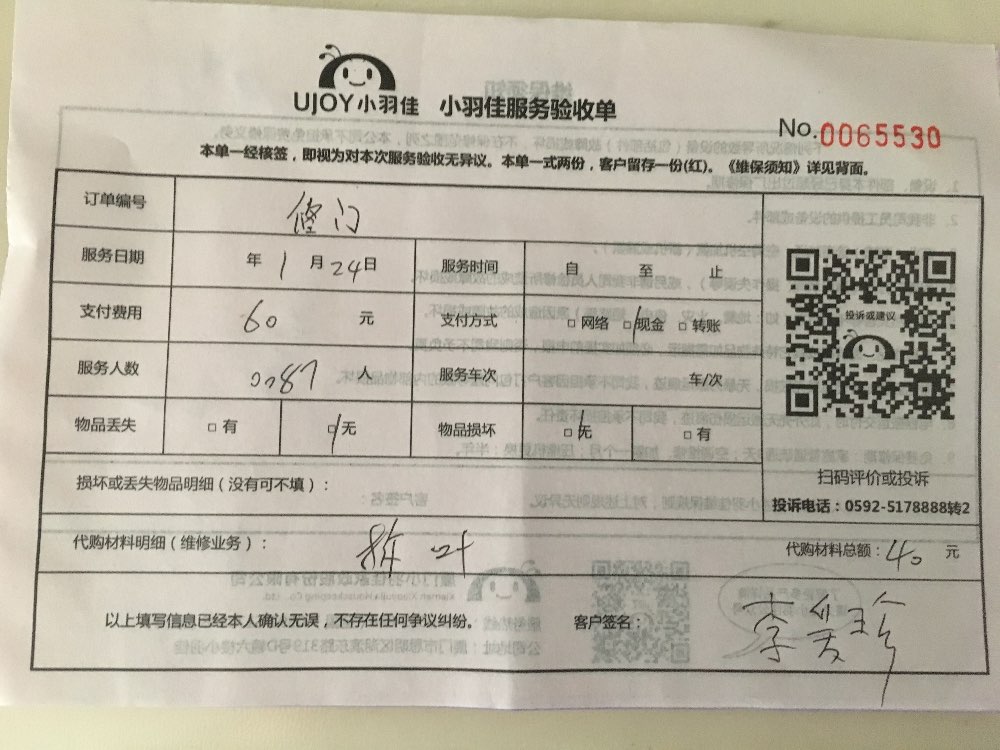 UJOY小羽佳 小羽佳服务验收单
No.0065530
本单一经核签，即视为对本次服务验收无异议。本单一式两份，客户留存一份(红)。《维保须知》详见背面。
订单编号 修门
服务日期 年 1 月 24日 服务时间 自 至 止
支付费用 60 元 支付方式 □ 网络 □ 现金 □ 转账
服务人数 0087 人 服务车次 车/次
物品丢失 □ 有 □ 无 物品损坏 □ 无 □ 有
投诉或建议
扫码评价或投诉
投诉电话：0592-5178888转2
损坏或丢失物品明细（没有可不填）：
代购材料明细（维修业务）： 代购材料总额：40 元
以上填写信息已经本人确认无误，不存在任何争议纠纷。 客户签名：